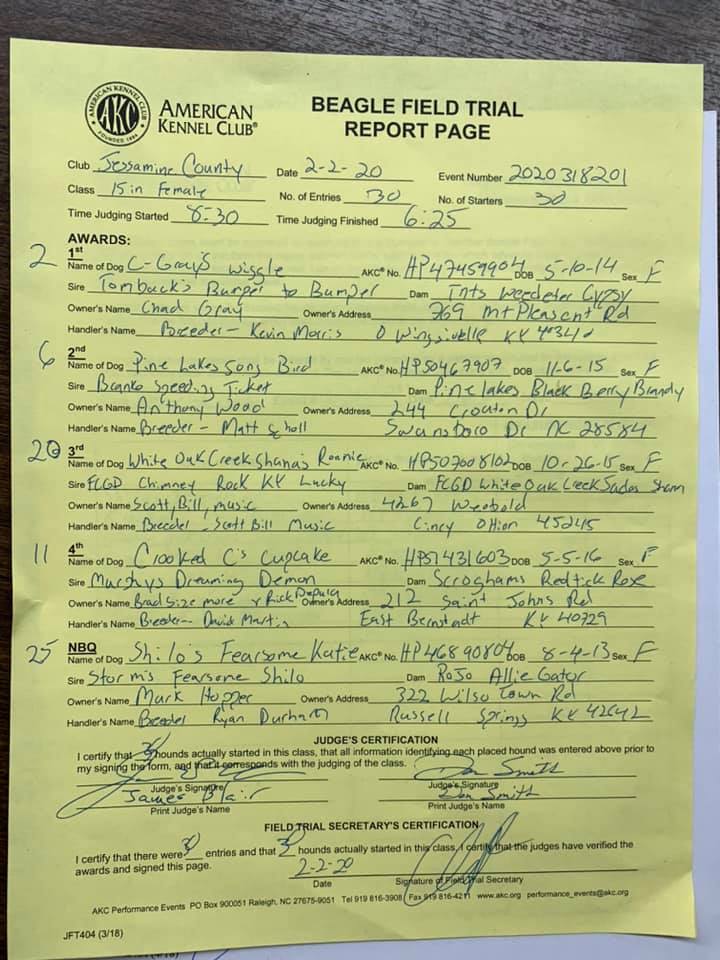 AMERICAN KENNEL CLUB
AKC
FOUNDED 1884
AMERICAN
KENNEL CLUB®
BEAGLE FIELD TRIAL
REPORT PAGE
Club Jessamine County Date 2-2-20 Event Number 2020318201
Class 15 in Female No. of Entries 30 No. of Starters 30
Time Judging Started 8:30 Time Judging Finished 6:25
AWARDS:
2 1st
Name of Dog C-Gray's Wiggle AKC® No. HP47459904 DOB 5-10-14 Sex F
Sire Tomback's Burper to Bumper Dam Tnts Weedeter Gypsy
Owner's Name Chad Gray Owner's Address 769 Mt Pleasent Rd
Handler's Name Breeder - Kevin Morris KY
6 2nd
Name of Dog Pine Lakes Song Bird AKC® No. HP50467907 DOB 11-6-15 Sex F
Sire Branko Speeding Ticket Dam Pine lakes Black Berry Brandy
Owner's Name Anthony Wood Owner's Address 244 Croaton Dr
Handler's Name Breeder - Matt Swansboro Dr NC 28584
20 3rd
Name of Dog White Oak Creek Shana's Ronnie AKC® No. HP507008102 DOB 10-26-15 Sex F
Sire FCGD Chimney Rock KY Lucky Dam FCGD White Oak Creek Sham
Owner's Name Scott, Bill, music Owner's Address 4267
Handler's Name Breeder - Scott Bill Music Cincy 45245
11 4th
Name of Dog Crooked C's Cupcake AKC® No. HP51431603 DOB 5-5-16 Sex F
Sire Murphys Dreuming Demon Dam Scroghams Redtick Rose
Owner's Name Brad Sizemore & Rick Deputy Owner's Address 212 Saint Johns Rd
Handler's Name Breeder - David Martin East Bernstadt KY 40729
25 NBQ
Name of Dog Shilo's Fearsome Katie AKC® No. HP46890804 DOB 8-4-13 Sex F
Sire Storm's Fearsome Shilo Dam RoJo Allie Gator
Owner's Name Mark Hopper Owner's Address 322 Wilso Town Rd
Handler's Name Breeder Ryan Durham Russell Springs KY 42642
JUDGE'S CERTIFICATION
I certify that 30 hounds actually started in this class, that all information identifying each placed hound was entered above prior to
my signing the form, and that it corresponds with the judging of the class.
Don Smith
Judge's Signature Judge's Signature
James Blair Don Smith
Print Judge's Name Print Judge's Name
FIELD TRIAL SECRETARY'S CERTIFICATION
I certify that there were 30 entries and that 30 hounds actually started in this class, I certify that the judges have verified the
awards and signed this page.
2-2-20
Date Signature of Field Trial Secretary
AKC Performance Events PO Box 900051 Raleigh, NC 27675-9051 Tel 919 816-3908 Fax 919 816-4211 www.akc.org performance_events@akc.org
JFT404 (3/18)